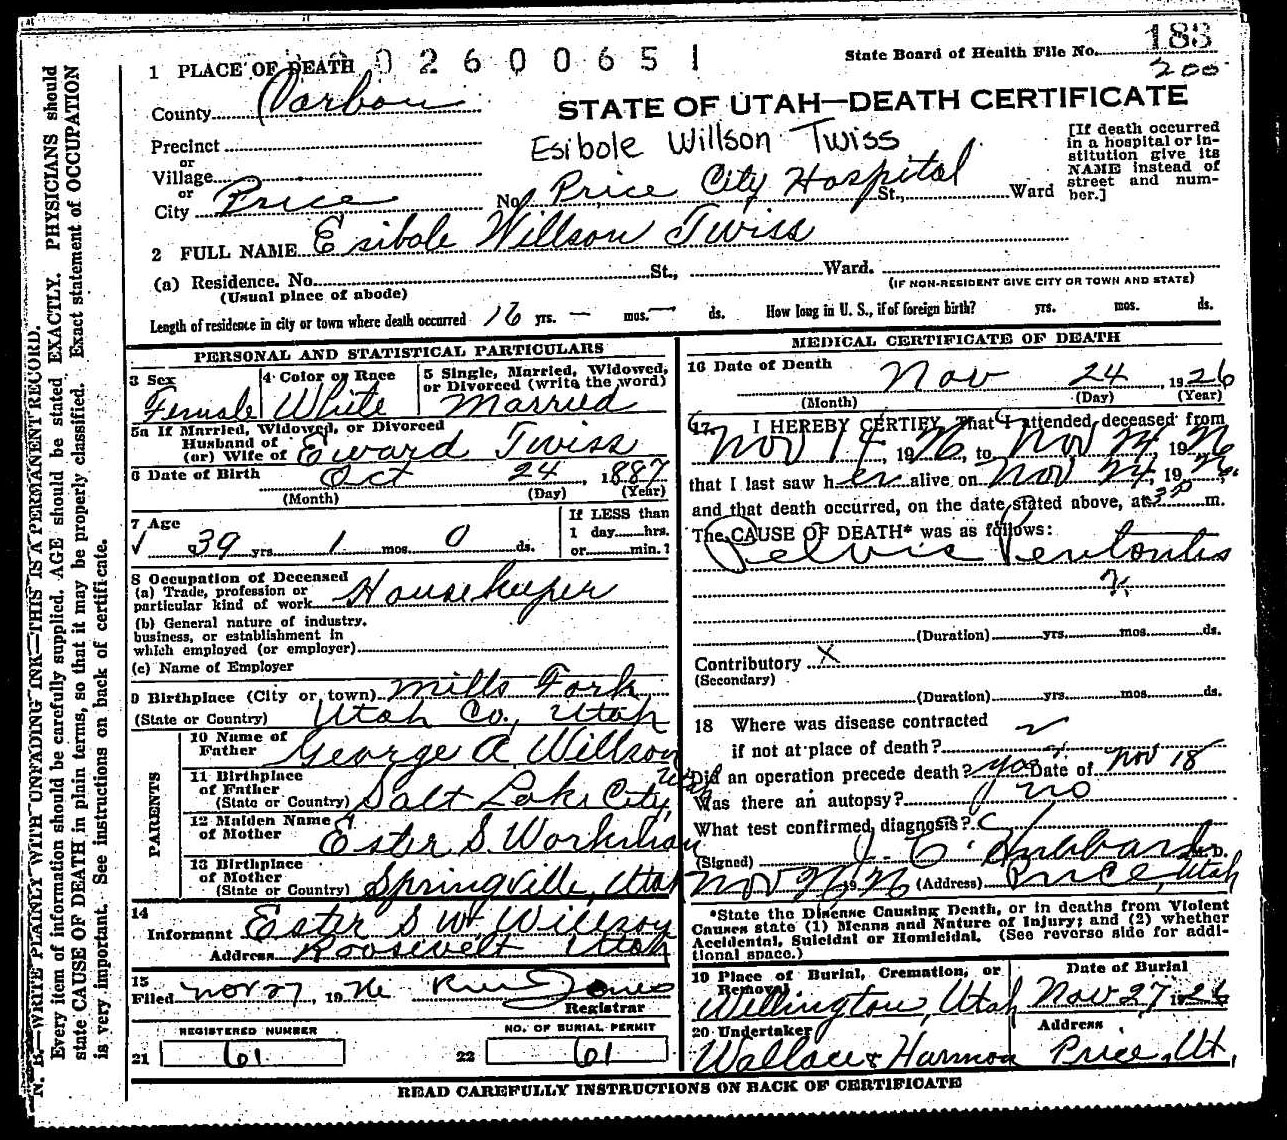 183
State Board of Health File No.
200
1 PLACE OF DEATH 02600651
County Carbon
STATE OF UTAH—DEATH CERTIFICATE
Precinct
or
Village
or
City Price
Esibole Willson Twiss
No. Price City Hospital St., Ward
[If death occurred
in a hospital or in-
stitution give its
NAME instead of
street and num-
ber.]
2 FULL NAME Esibole Willson Twiss
(a) Residence. No. St., Ward.
(Usual place of abode)
(IF NON-RESIDENT GIVE CITY OR TOWN AND STATE)
Length of residence in city or town where death occurred 16 yrs. — mos. — ds. How long in U. S., if of foreign birth? yrs. mos. ds.
PERSONAL AND STATISTICAL PARTICULARS
3 Sex
Female
4 Color or Race
White
5 Single, Married, Widowed,
or Divorced (write the word)
Married
5a If Married, Widowed, or Divorced
Husband of
(or) Wife of Edward Twiss
6 Date of Birth Oct 24, 1887
(Month) (Day) (Year)
7 Age
39 yrs. 1 mos. 0 ds.
If LESS than
1 day hrs.
or min.?
8 Occupation of Deceased
(a) Trade, profession or
particular kind of work Housekeeper
(b) General nature of industry,
business, or establishment in
which employed (or employer)
(c) Name of Employer
9 Birthplace (City or town) Mills Fork
(State or Country) Utah Co., Utah
PARENTS
10 Name of
Father George A. Willson
11 Birthplace
of Father
(State or Country) Salt Lake City, Utah
12 Maiden Name
of Mother Ester S. Workman
13 Birthplace
of Mother
(State or Country) Springville, Utah
14
Informant Ester S W. Willson
Address Roosevelt Utah
15
Filed Nov 27, 1926 Jones
Registrar
REGISTERED NUMBER
21 61
NO. OF BURIAL PERMIT
22 61
MEDICAL CERTIFICATE OF DEATH
16 Date of Death Nov 24, 1926
(Month) (Day) (Year)
17. I HEREBY CERTIFY, That I attended deceased from
Nov 14, 1926, to Nov 24, 1926
that I last saw her alive on Nov 24, 1926.
and that death occurred, on the date stated above, at 3 P m.
The CAUSE OF DEATH* was as follows:
Pelvic Peritonitis
(Duration) yrs. mos. ds.
Contributory X
(Secondary)
(Duration) yrs. mos. ds.
18 Where was disease contracted
if not at place of death?
Did an operation precede death? yes Date of Nov 18
Was there an autopsy? no
What test confirmed diagnosis?
(Signed) J. C. Hubbard M. D.
Nov 26 1926 (Address) Price, Utah
*State the Disease Causing Death, or in deaths from Violent
Causes state (1) Means and Nature of Injury; and (2) whether
Accidental, Suicidal or Homicidal. (See reverse side for addi-
tional space.)
19 Place of Burial, Cremation, or
Removal
Wellington, Utah
Date of Burial
Nov 27, 1926
20 Undertaker
Wallace & Harmon
Address
Price, Ut.
READ CAREFULLY INSTRUCTIONS ON BACK OF CERTIFICATE
N. B.—WRITE PLAINLY WITH UNFADING INK—THIS IS A PERMANENT RECORD.
Every item of information should be carefully supplied. AGE should be stated EXACTLY. PHYSICIANS should
state CAUSE OF DEATH in plain terms, so that it may be properly classified. Exact statement of OCCUPATION
is very important. See instructions on back of certificate.